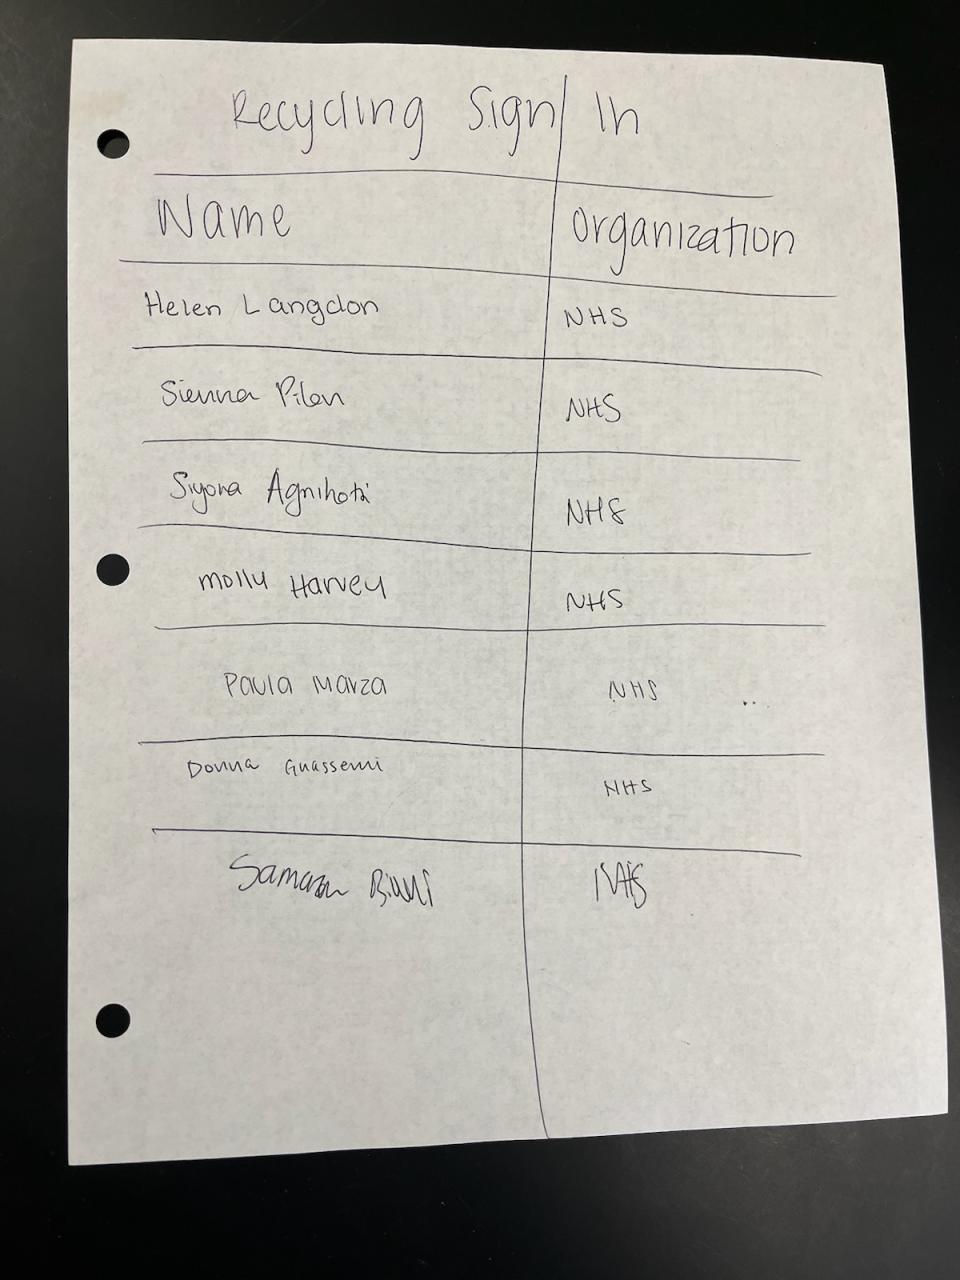 Recycling Sign In
Name Organization
Helen Langdon NHS
Sienna Pilon NHS
Siyona Agnihotri NHS
Molly Harvey NHS
Paula Marza NHS
Donna Ghassemi NHS
NHS